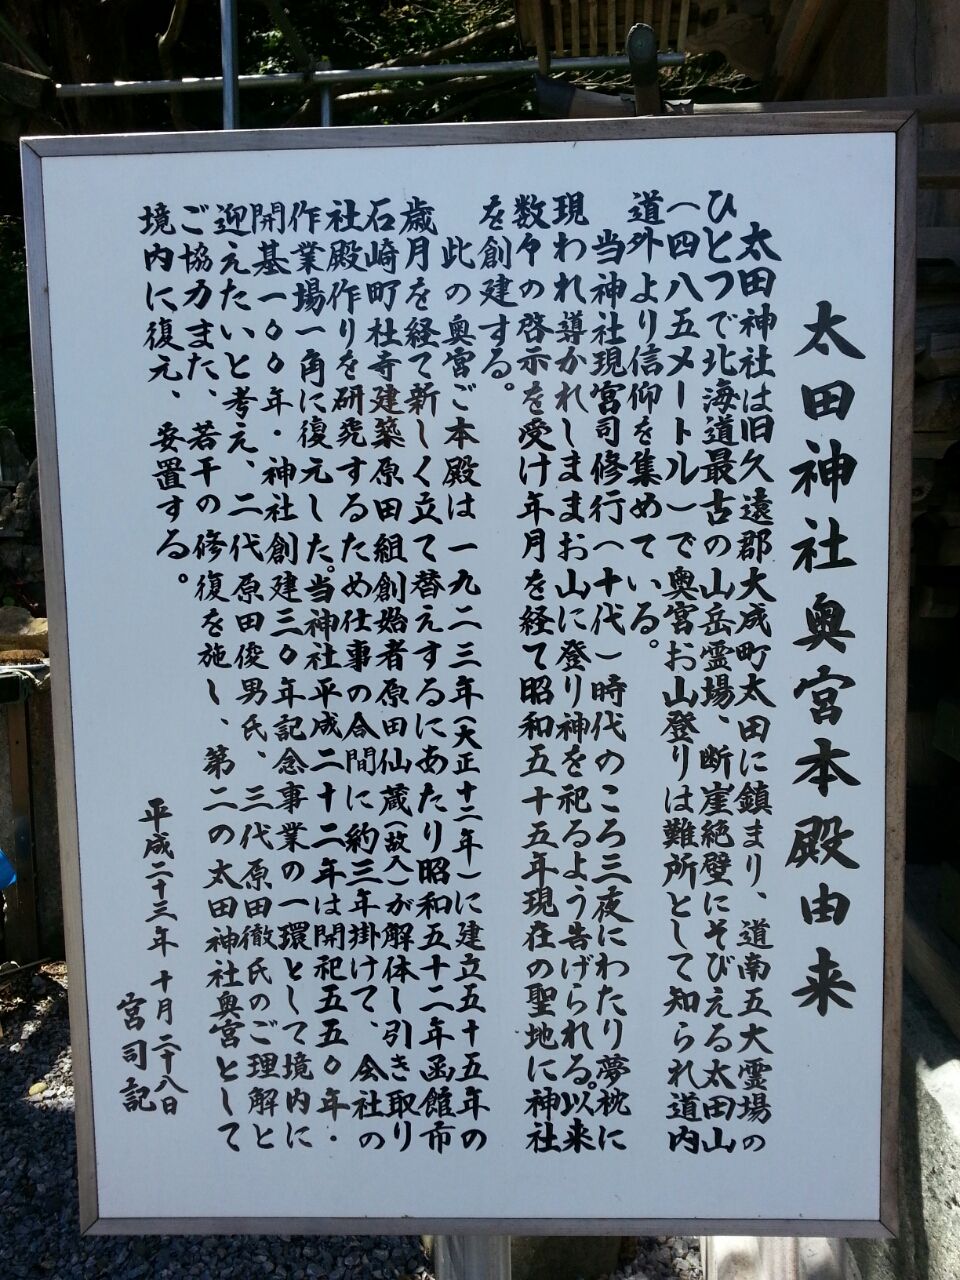 太田神社奥宮本殿由来
太田神社は旧久遠郡大成町太田に鎮まり、道南五大霊場の
ひとつで北海道最古の山岳霊場、断崖絶壁にそびえる太田山
（四八五メートル）で奥宮お山登りは難所として知られ道内
道外より信仰を集めている。
当神社現宮司修行（十代）時代のころ三夜にわたり夢枕に
現われ導かれしままお山に登り神を祀るよう告げられる。以来
数々の啓示を受け年月を経て昭和五十五年現在の聖地に神社
を創建する。
此の奥宮ご本殿は一九二三年（大正十二年）に建立五十五年の
歳月を経て新しく立て替えするにあたり昭和五十二年函館市
石崎町社寺建築原田組創始者原田仙蔵（故人）が解体し引き取り
社殿作りを研発するため仕事の合間に約三年掛けて、会社の
作業場一角に復元した。当神社平成二十二年は開祀五五〇年・
開基一〇〇年・神社創建三〇年記念事業の一環として境内に
迎えたいと考え、二代原田俊男氏、三代原田徹氏のご理解と
ご協力また、若干の修復を施し、第二の太田神社奥宮として
境内に復え、安置する。
平成二十三年十月二十八日
宮司記